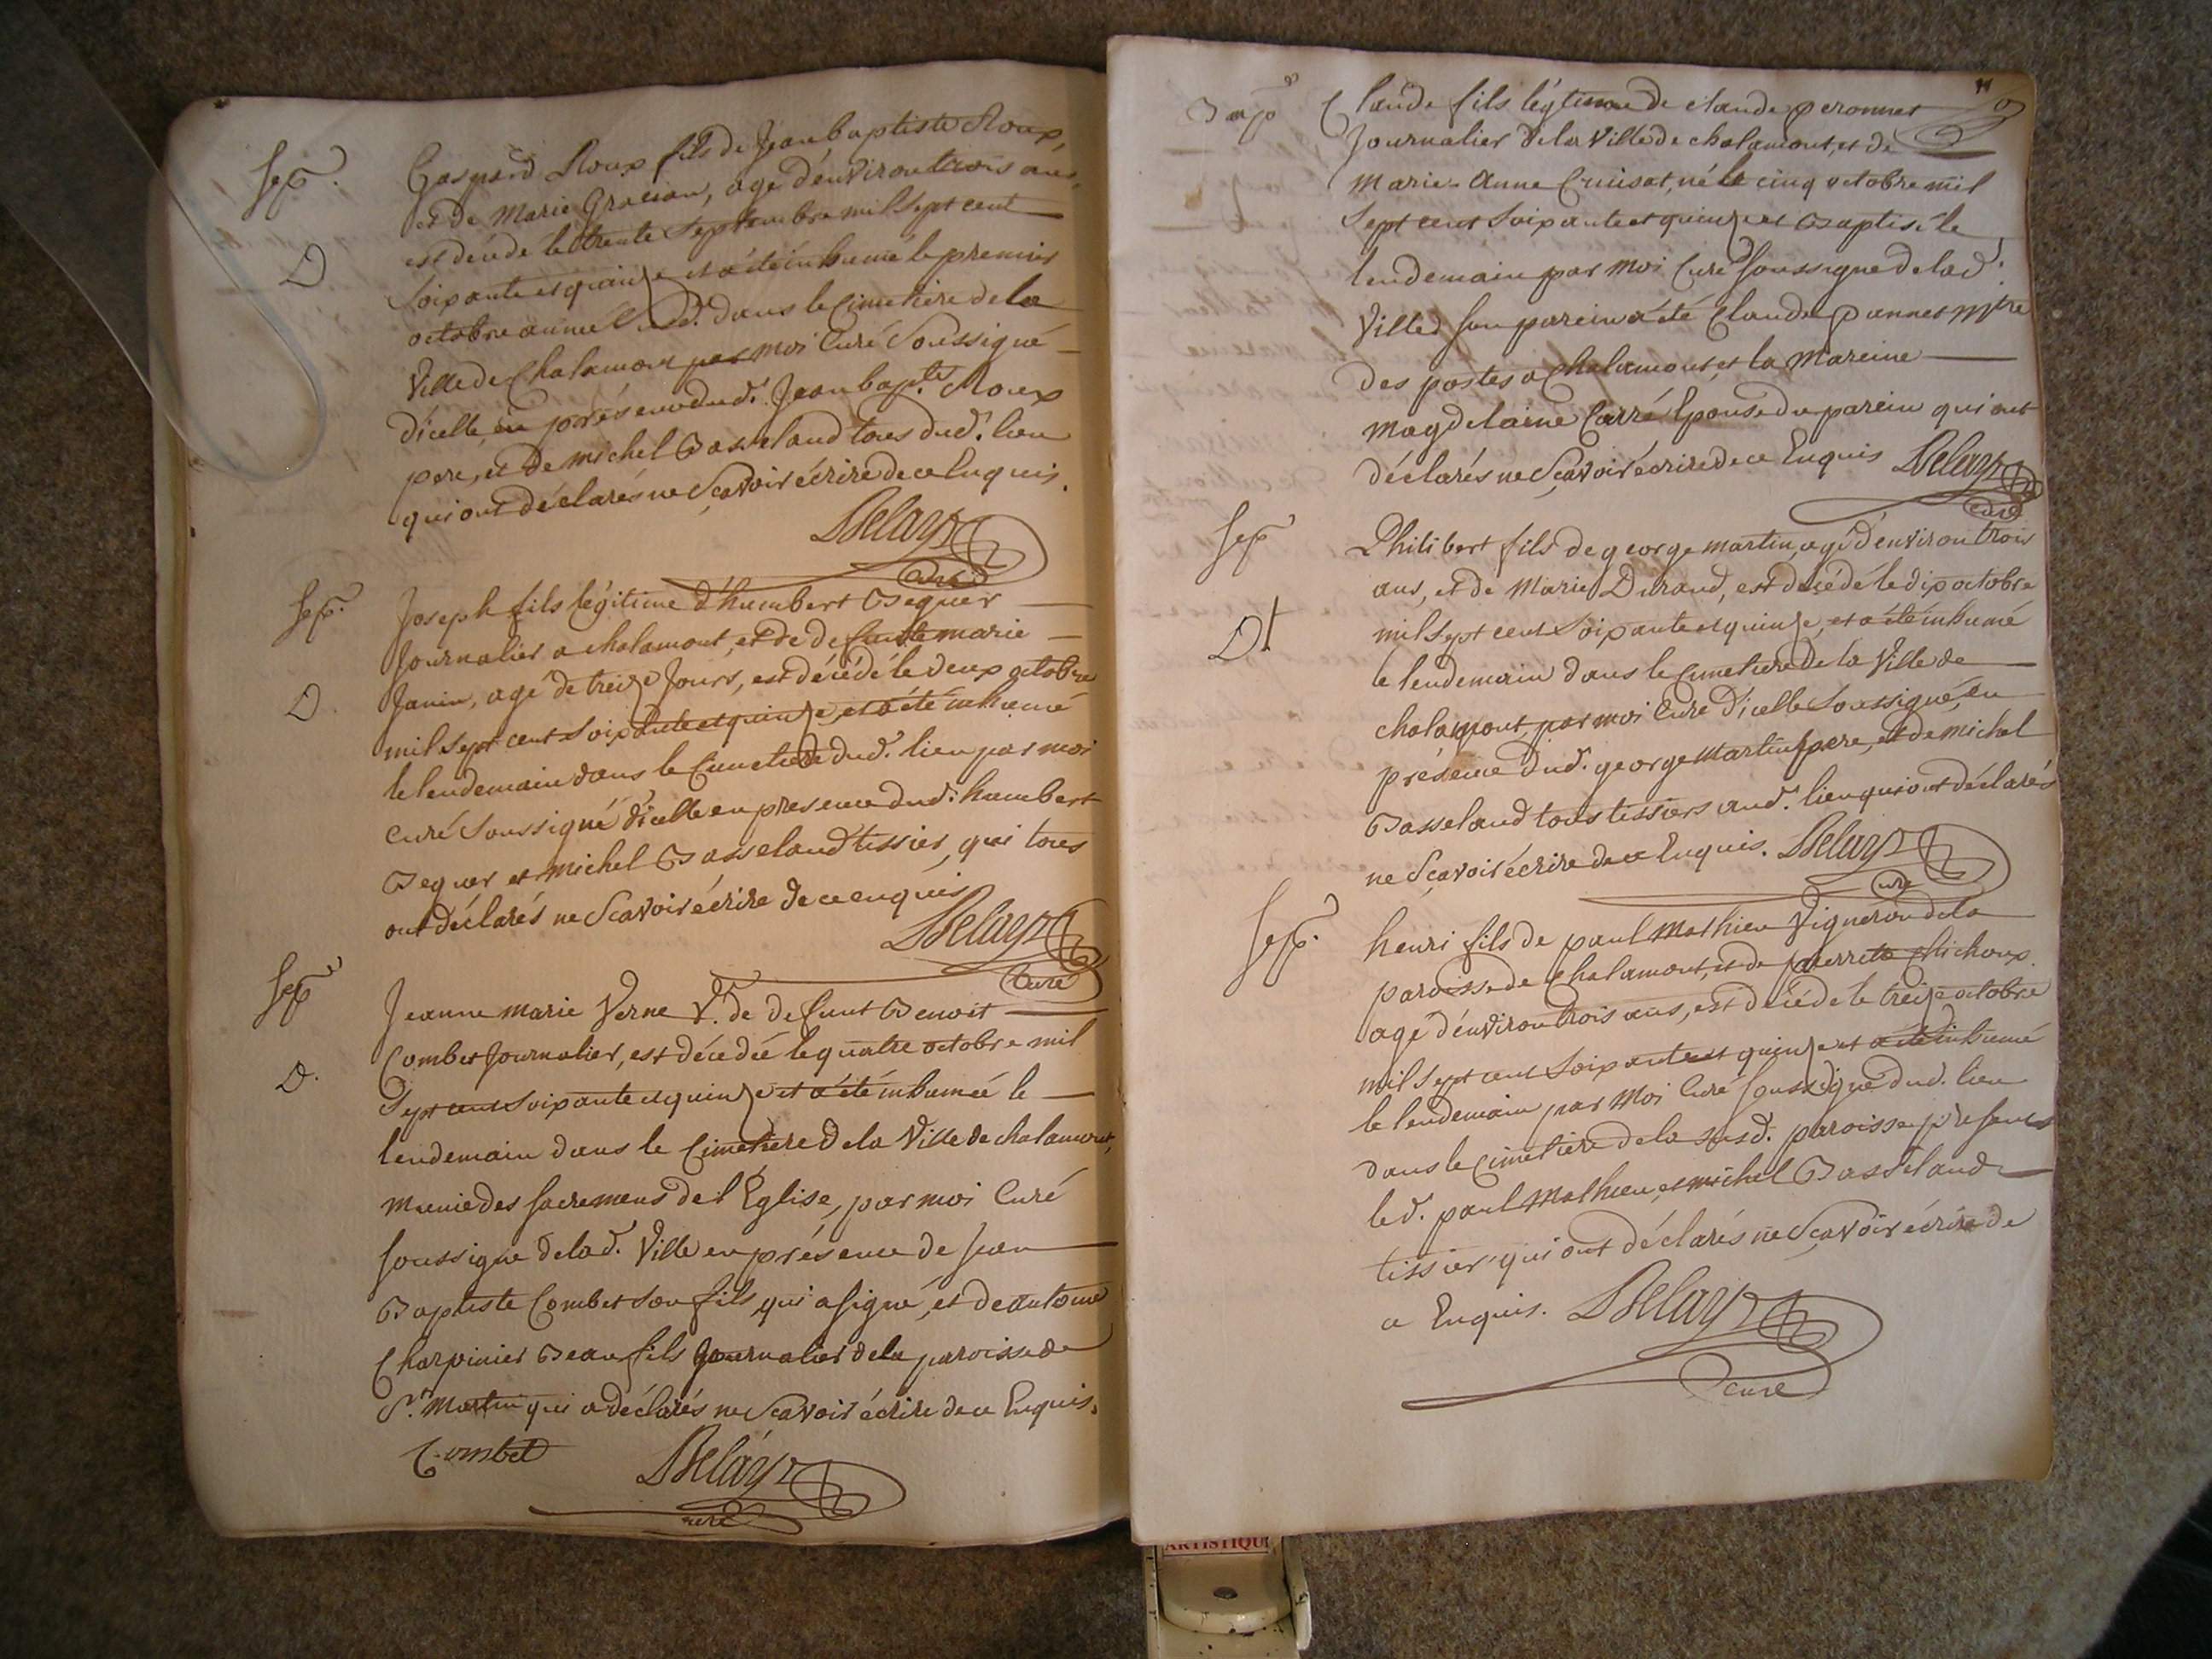 Sep.
Gaspard Roux fils de Jean baptiste Roux,
et de Marie Gracian, agé d'environ trois ans,
est décédé le trente septembre mil sept cent
D
soixante et quinze et a été inhumé le premier
octobre année dans le Cimetiere de la
Ville de Chalamont par moi Curé Soussigné
d'icelle, en présence dud. Jean bap.te Roux
pere, et de michel Basseland tous dud. lieu
qui ont déclarés ne Scavoir écrire de ce Enquis.
Delay
curé
Sep.
Joseph fils légitime d'humbert Beguer
Journalier a chalamont, et de defunte marie
D.
Janin, agé de treize Jours, est décédé le deux octobre
mil sept cent soixante et quinze, et a été inhumé
le lendemain dans le Cimetiere dud. lieu par moi
curé Soussigné d'icelle en presence dud. humbert
Beguer et michel Basseland tissier, qui tous
ont déclarés ne Scavoir écrire de ce enquis
Delay
Curé
Sep
Jeanne marie Verne V.e de defunt Benoit
Combet Journalier, est décédée le quatre octobre mil
D.
Sept cent soixante et quinze et a été inhumée le
lendemain dans le Cimetiere de la Ville de chalamont,
munie des sacremens de l'Eglise, par moi Curé
soussigné de lad. Ville en présence de Jean
Baptiste Combet son fils, qui a signé, et de antoine
Charpinier Beaufils Journalier de la paroisse de
St. Martin qui a déclarés ne Scavoir écrire de ce Enquis.
Combet Delay
curé
11
Bap Claude fils légitime de claude peronnet
Journalier de la Ville de chalamont, et de
Marie-Anne Cruisat, né le cinq octobre mil
Sept cent soixante et quinze et Baptisé le
lendemain par moi Curé soussigné de lad.
Ville, son parein a été Claude pannet
des postes a Chalamont, et la Mareine
Magdelaine Carré Epouse du parein qui ont
déclarés ne Scavoir écrire de ce Enquis Delay
curé
Sep
Philibert fils de george martin, agé d'environ trois
ans, et de Marie Durand, est décédé le dix octobre
Dt
mil sept cent soixante et quinze, et a été inhumé
le lendemain dans le Cimetiere de la Ville de
chalamont, par moi Curé d'icelle Soussigné, en
présence dud. george Martin pere, et de michel
Basseland tous tissiers aud. lieu qui ont déclarés
ne Scavoir écrire de ce Enquis. Delay
curé
Sep.
henri fils de paul Mathieu Vigneron de la
paroisse de Chalamont, et de pierrete Michoux
agé d'environ trois ans, est décédé le treize octobre
mil sept cent soixante et quinze et a été inhumé
le lendemain par moi Curé soussigné dud. lieu
dans le Cimetiere de la susd. paroisse, presents
led. paul Mathieu, et michel Basseland
tissier qui ont déclarés ne Scavoir écrire de
ce Enquis. Delay
curé
ARTISTIQU